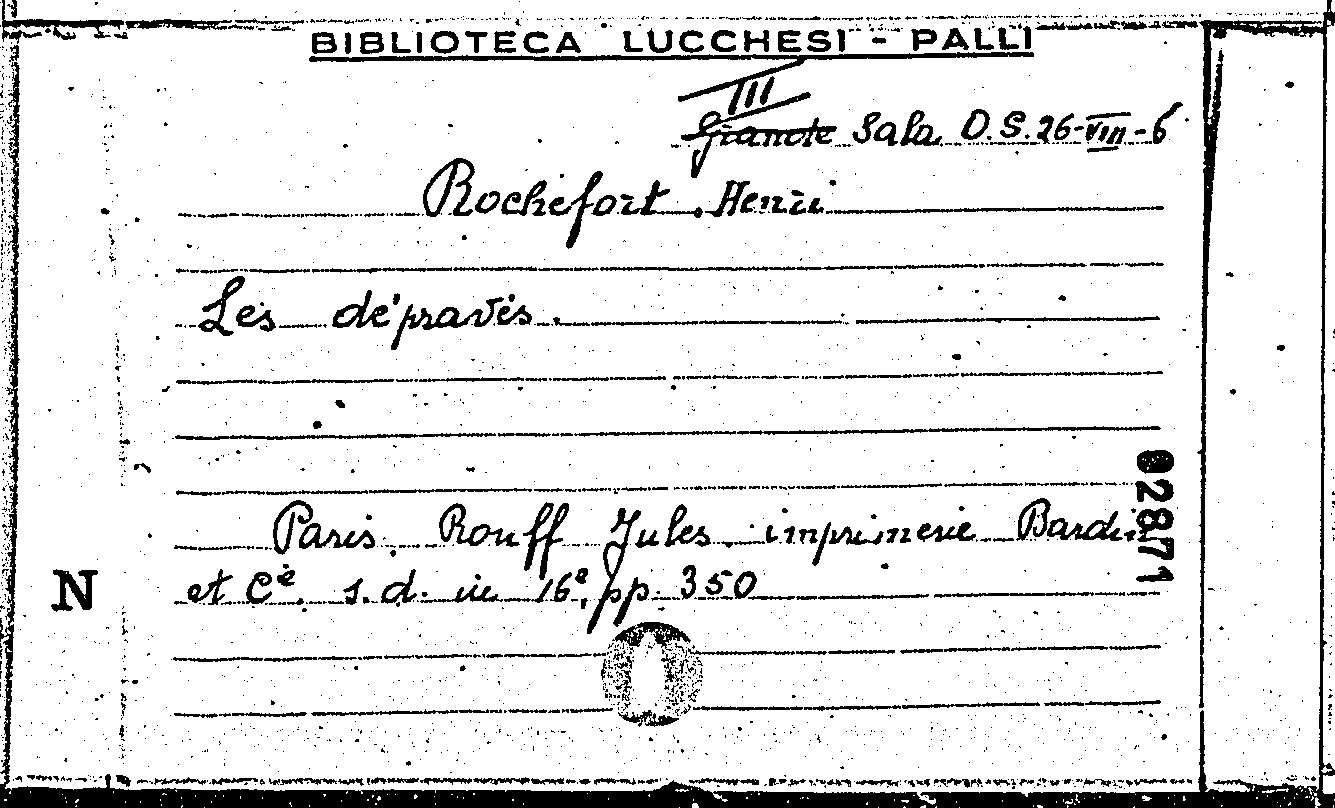 BIBLIOTECA LUCCHESI - PALLI
III
Grande Sala D.S. 26-VIII-6
Rochefort, Henri
Les dépravés.
Paris. Rouff Jules. imprimerie Bardin
et Cie. s.d. in 16º, pp. 350
82871
N